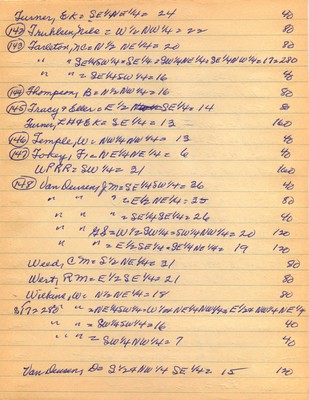 Turner, E K = SE¼NE¼ = 24 40
(142) Trukken, Nils = W½NW¼ = 22 80
(143) Tarleton, W = N½NE¼ = 20 80
" " SE¼SW¼ = SE¼ = SW¼NE¼ = SE¼NW¼ = 17 = 280
" " = SE¼SW¼ = 16 40
(144) Thompson, B = N½NW¼ = 16 80
(145) Tracy & Eller = E½ SE¼ = 14 80
Turner, L H & E K = SE¼ = 13 160
(146) Temple, W = NW¼NW¼ = 13 40
(147) Tokey, F, = NE¼NE¼ = 6 40
U P R R = SW¼ = 31 160
(148) Van Deusen, J M = SE¼SW¼ = 36 40
" " " = E½NE¼ = 35 80
" " " = SE¼SE¼ = 26 40
" " G S = W½SW¼ = SW¼NW¼ = 20 120
" " = E½SE¼ = SE¼NE¼ = 19 120
Weed, C M = S½NE¼ = 31 80
West, R M = E½SE¼ = 21 80
Wilkins, W = N½NE¼ = 18 80
317 = 280 " = NE¼SW¼ = W½NE¼NW¼ = E½ NW¼NE¼
" " = SW¼SW¼ = 16 40
" " " = SW¼NW¼ = 7 40
Van Deusen, D = S½ NW¼ SE¼ = 15 120